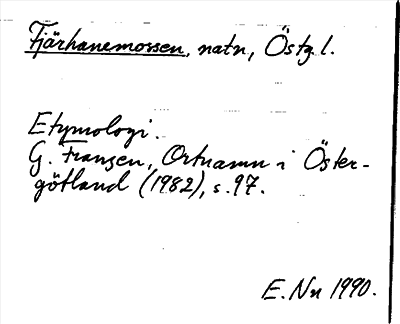 Fjärhanemossen, natn, Östg. l.
Etymologi.
G. Franzén, Ortnamn i Öster-
götland (1982), s. 97.
E. Nn 1990.